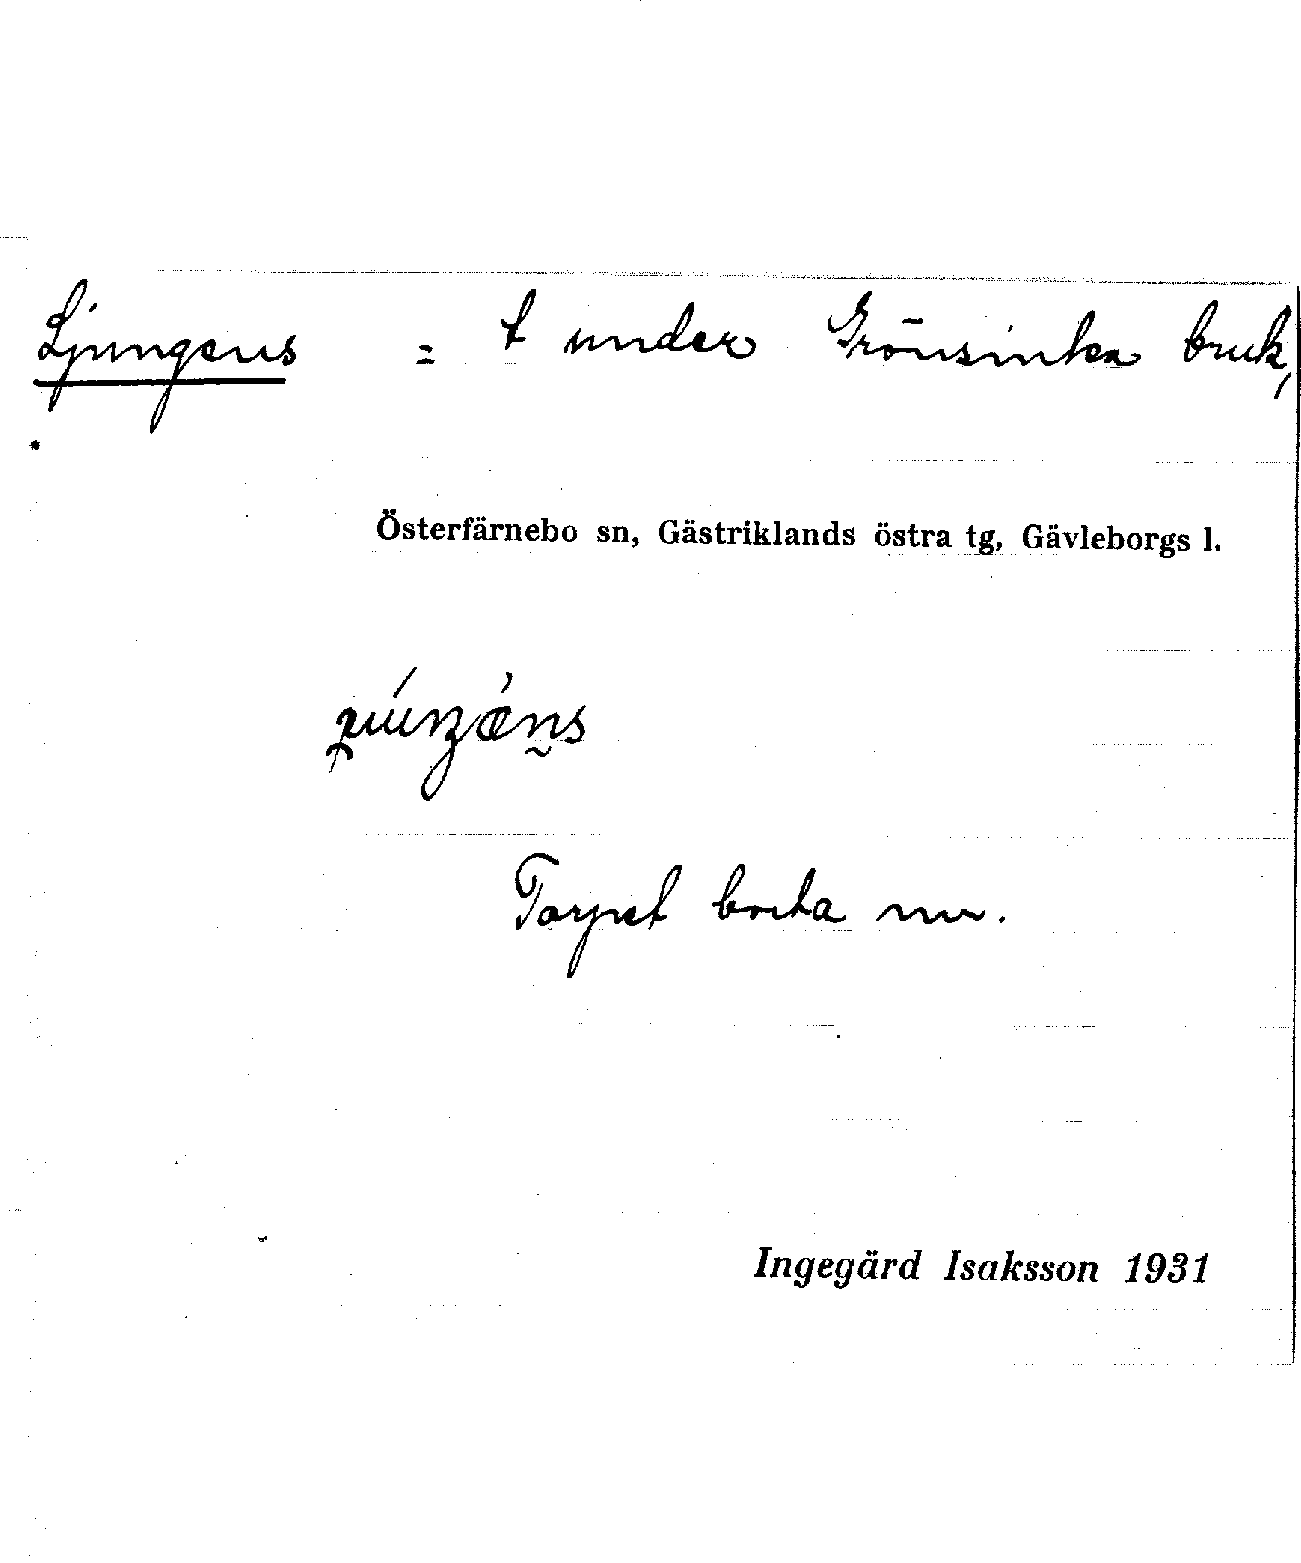 Ljungens = t under Grönsinka bruk,
Österfärnebo sn, Gästriklands östra tg, Gävleborgs l.
Torpet borta nu.
Ingegärd Isaksson 1931